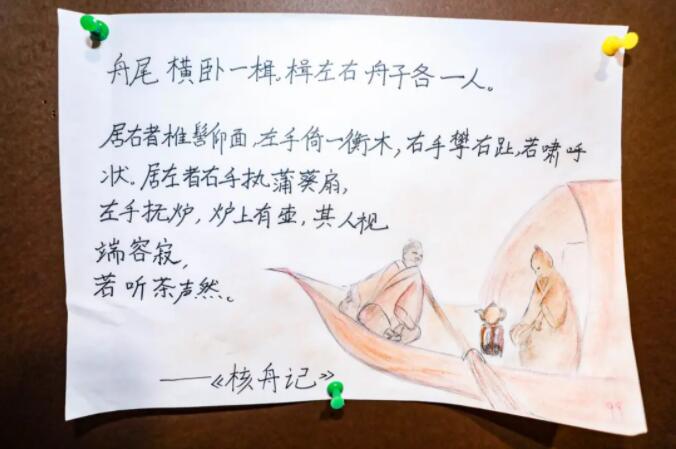 舟尾横卧一楫。楫左右舟子各一人。
居右者椎髻仰面，左手倚一衡木，右手攀右趾，若啸呼
状。居左者右手执蒲葵扇，
左手抚炉，炉上有壶，其人视
端容寂，
若听茶声然。
——《核舟记》
99